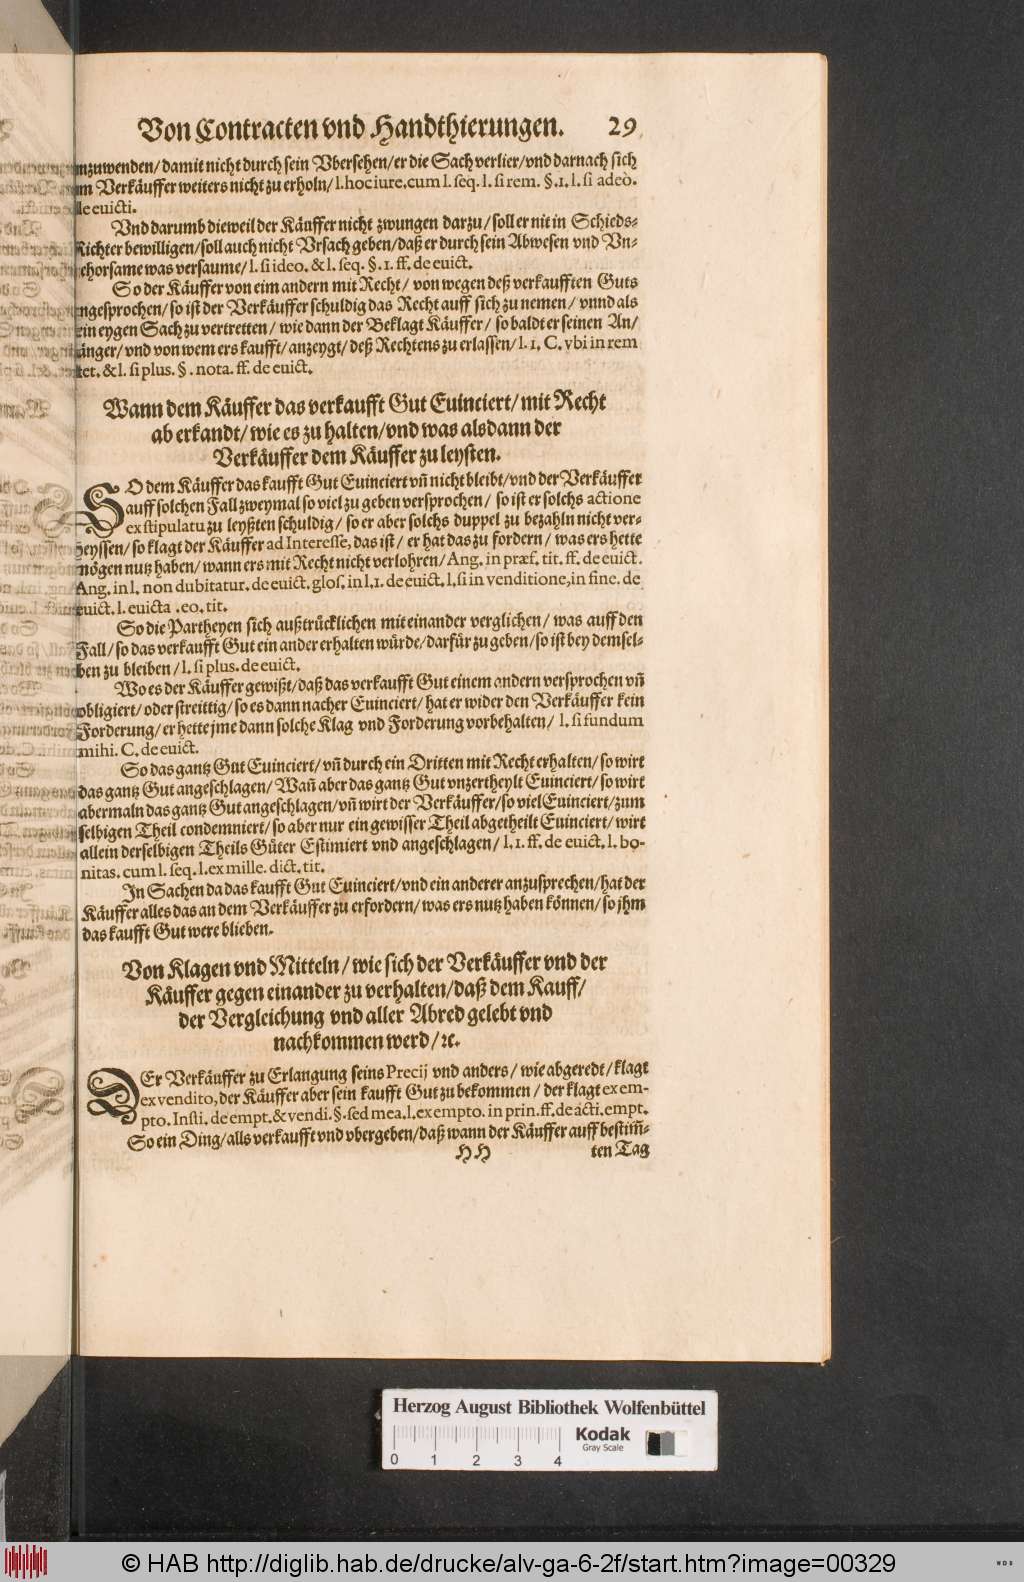 Von Contracten vnd Handthierungen. 29
nzuwenden/ damit nicht durch sein Vbersehen/ er die Sach verlier/ vnd darnach sich
m Verkäuffer weiters nicht zu erholn/ l. hoc iure. cum l. seq. l. si rem. §. 1. l. si adeò.
lle euicti.
Vnd darumb dieweil der Käuffer nicht zwungen darzu/ soll er nit in Schieds-
Richter bewilligen/ soll auch nicht Vrsach geben/ daß er durch sein Abwesen vnd Vn-
ehorsame was versaume/ l. si ideo. & l. seq. §. 1. ff. de euict.
So der Käuffer von eim andern mit Recht/ von wegen deß verkaufften Guts
ngesprochen/ so ist der Verkäuffer schuldig das Recht auff sich zu nemen/ vnnd als
ein eygen Sach zu vertretten/ wie dann der Beklagt Käuffer/ so baldt er seinen An/
änger/ vnd von wem ers kaufft/ anzeygt/ deß Rechtens zu erlassen/ l. 1. C. vbi in rem
et. & l. si plus. §. nota. ff. de euict.
Wann dem Käuffer das verkaufft Gut Euinciert/ mit Recht
ab erkandt/ wie es zu halten/ vnd was alsdann der
Verkäuffer dem Käuffer zu leysten.
SO dem Käuffer das kaufft Gut Euinciert vñ nicht bleibt/ vnd der Verkäuffer
auff solchen Fall zweymal so viel zu geben versprochen/ so ist er solchs actione
ex stipulatu zu leyßten schuldig/ so er aber solchs duppel zu bezahln nicht ver-
heyssen/ so klagt der Käuffer ad Interesse, das ist/ er hat das zu fordern/ was ers hette
mögen nutz haben/ wann ers mit Recht nicht verlohren/ Ang. in præf. tit. ff. de euict.
Ang. in l. non dubitatur. de euict. glos. in l. 1. de euict. l. si in venditione, in fine. de
euict. l. euicta. eo. tit.
So die Partheyen sich außtrücklichen miteinander verglichen/ was auff den
Fall/ so das verkaufft Gut ein ander erhalten würde/ darfür zu geben/ so ist bey demsel-
ben zu bleiben/ l. si plus. de euict.
Wo es der Käuffer gewißt/ daß das verkaufft Gut einem andern versprochen vñ
obligiert/ oder streittig/ so es dann nacher Euinciert/ hat er wider den Verkäuffer kein
Forderung/ er hette jme dann solche Klag vnd Forderung vorbehalten/ l. si fundum
mihi. C. de euict.
So das gantz Gut Euinciert/ vñ durch ein Dritten mit Recht erhalten/ so wirt
das gantz Gut angeschlagen/ Wañ aber das gantz Gut vnzertheylt Euinciert/ so wirt
abermaln das gantz Gut angeschlagen/ vñ wirt der Verkäuffer/ so viel Euinciert/ zum
selbigen Theil condemniert/ so aber nur ein gewisser Theil abgetheilt Euinciert/ wirt
allein derselbigen Theils Güter Estimiert vnd angeschlagen/ l. 1. ff. de euict. l. bo-
nitas. cum l. seq. l. ex mille. dict. tit.
In Sachen da das kaufft Gut Euinciert/ vnd ein anderer anzusprechen/ hat der
Käuffer alles das an dem Verkäuffer zu erfordern/ was ers nutz haben können/ so jhm
das kaufft Gut were blieben.
Von Klagen vnd Mitteln/ wie sich der Verkäuffer vnd der
Käuffer gegen einander zu verhalten/ daß dem Kauff/
der Vergleichung vnd aller Abred gelebt vnd
nachkommen werd/ ꝛc.
DEr Verkäuffer zu Erlangung seins Precij vnd anders/ wie abgeredt/ klagt
ex vendito, der Käuffer aber sein kaufft Gut zu bekommen/ der klagt ex em-
pto. Insti. de empt. & vendi. §. sed mea. l. ex empto. in prin. ff. de acti. empt.
So ein Ding/ alls verkaufft vnd vbergeben/ daß wann der Käuffer auff bestim̃-
HH ten Tag
Herzog August Bibliothek Wolfenbüttel
0 1 2 3 4 Kodak Gray Scale
© HAB http://diglib.hab.de/drucke/alv-ga-6-2f/start.htm?image=00329